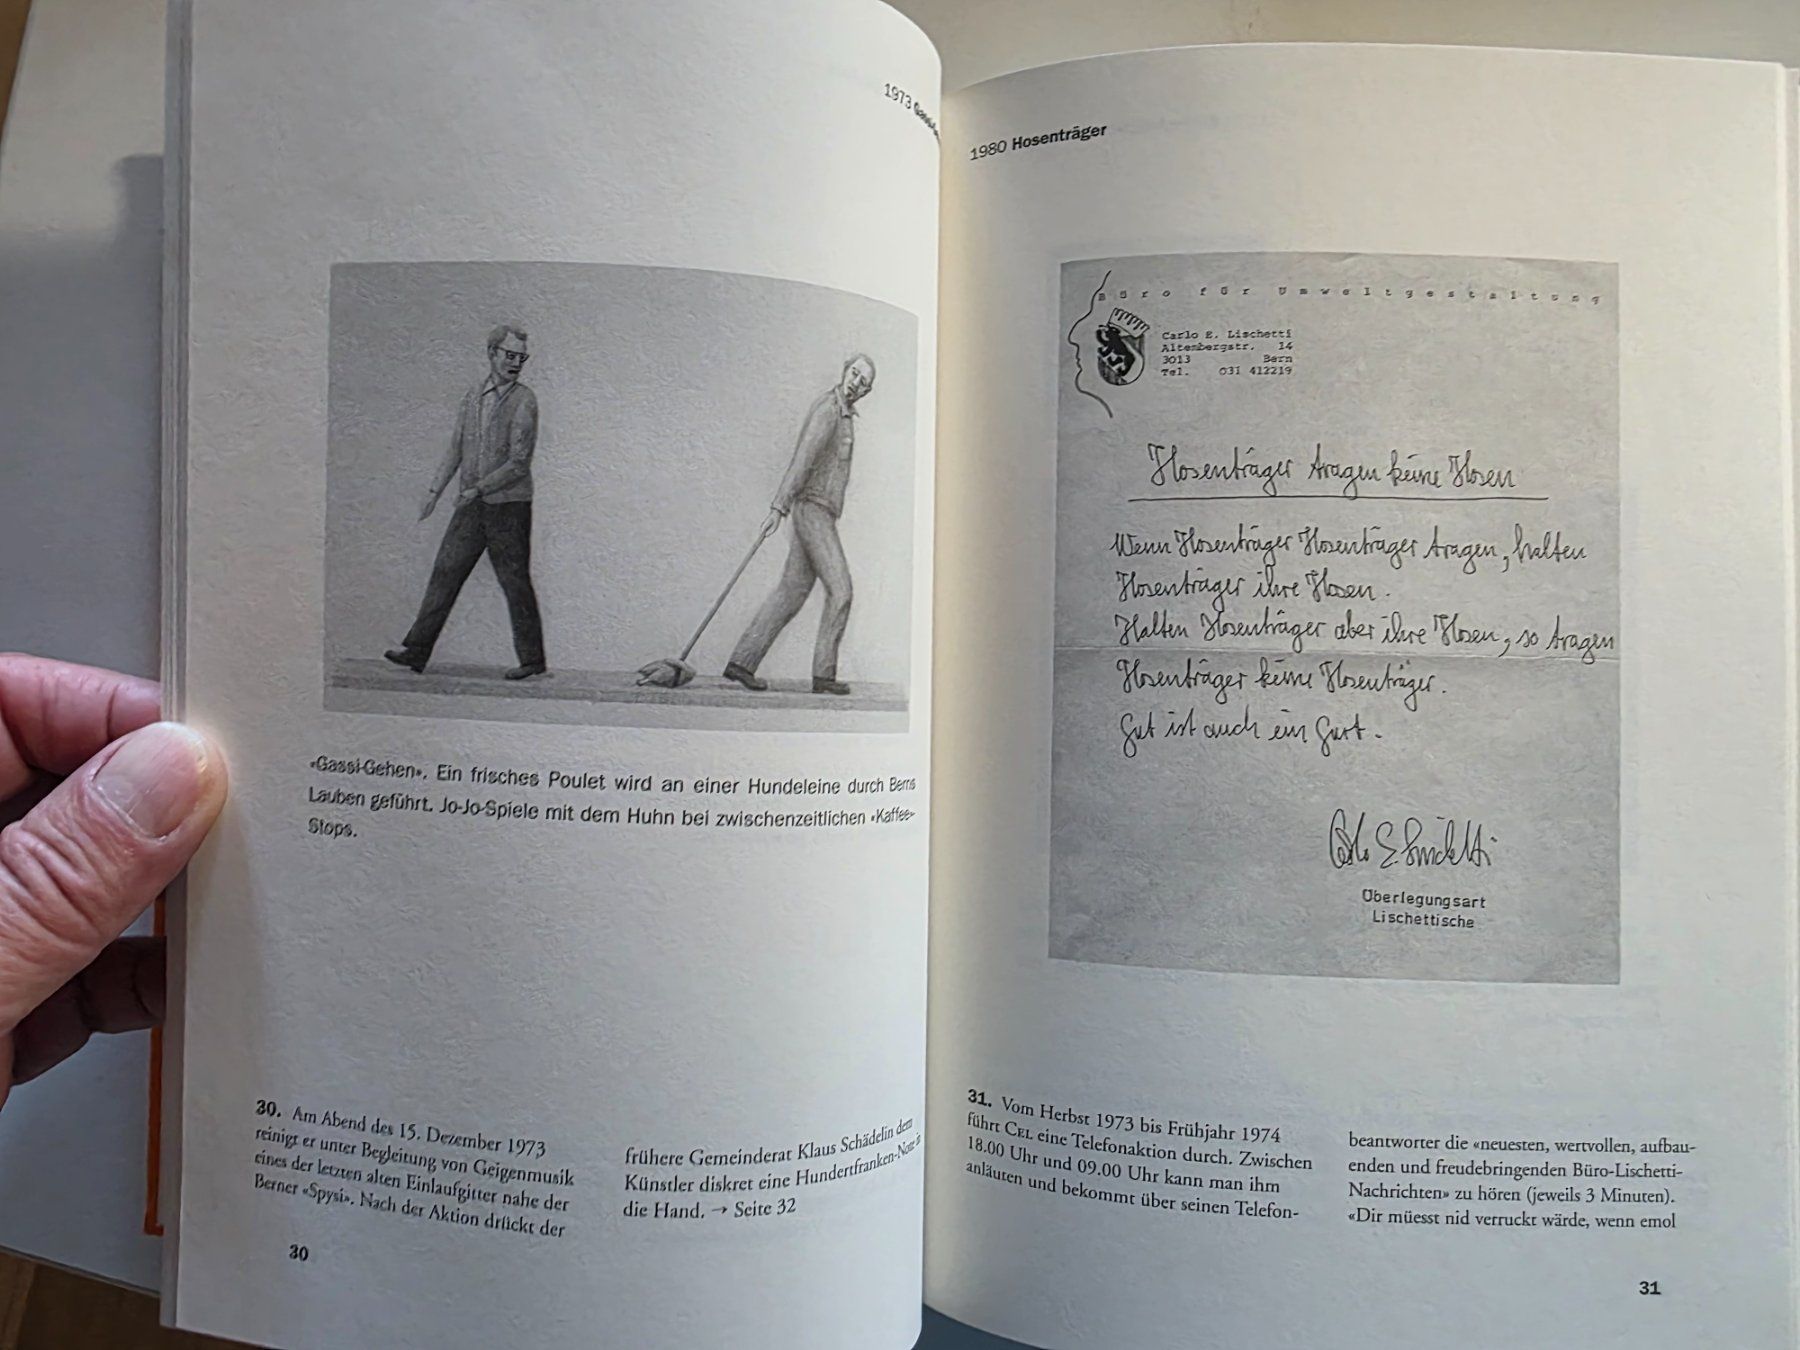 1973 Gassi-
«Gassi-Gehen». Ein frisches Poulet wird an einer Hundeleine durch Berns
Lauben geführt. Jo-Jo-Spiele mit dem Huhn bei zwischenzeitlichen «Kaffee»-
Stops.
30. Am Abend des 15. Dezember 1973
reinigt er unter Begleitung von Geigenmusik
eines der letzten alten Einlaufgitter nahe der
Berner «Spysi». Nach der Aktion drückt der
frühere Gemeinderat Klaus Schädelin dem
Künstler diskret eine Hundertfranken-Note in
die Hand. → Seite 32
30
1980 Hosenträger
Büro für Umweltgestaltung
Carlo E. Lischetti
Altenbergstr. 14
3013 Bern
Tel. 031 412219
Hosenträger tragen keine Hosen
Wenn Hosenträger Hosenträger tragen, halten
Hosenträger ihre Hosen.
Halten Hosenträger aber ihre Hosen, so tragen
Hosenträger keine Hosenträger.
Gut ist auch ein Gurt.
Carlo E. Lischetti
Überlegungsart
Lischettische
31. Vom Herbst 1973 bis Frühjahr 1974
führt CEL eine Telefonaktion durch. Zwischen
18.00 Uhr und 09.00 Uhr kann man ihm
anläuten und bekommt über seinen Telefon-
beantworter die «neuesten, wertvollen, aufbau-
enden und freudebringenden Büro-Lischetti-
Nachrichten» zu hören (jeweils 3 Minuten).
«Dir müesst nid verruckt wärde, wenn emol
31